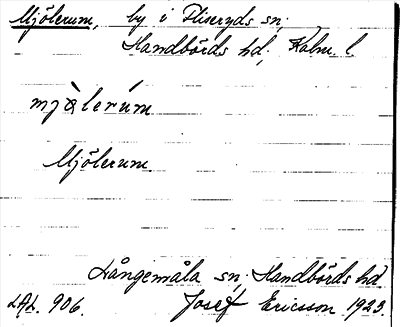 Mjölerum, by i Fliseryds sn;
Handbörds hd, Kalm. l.
mjòlerúm
Mjölerum.
Långemåla sn; Handbörds hd
LAL. 906. Josef Ericsson 1923.